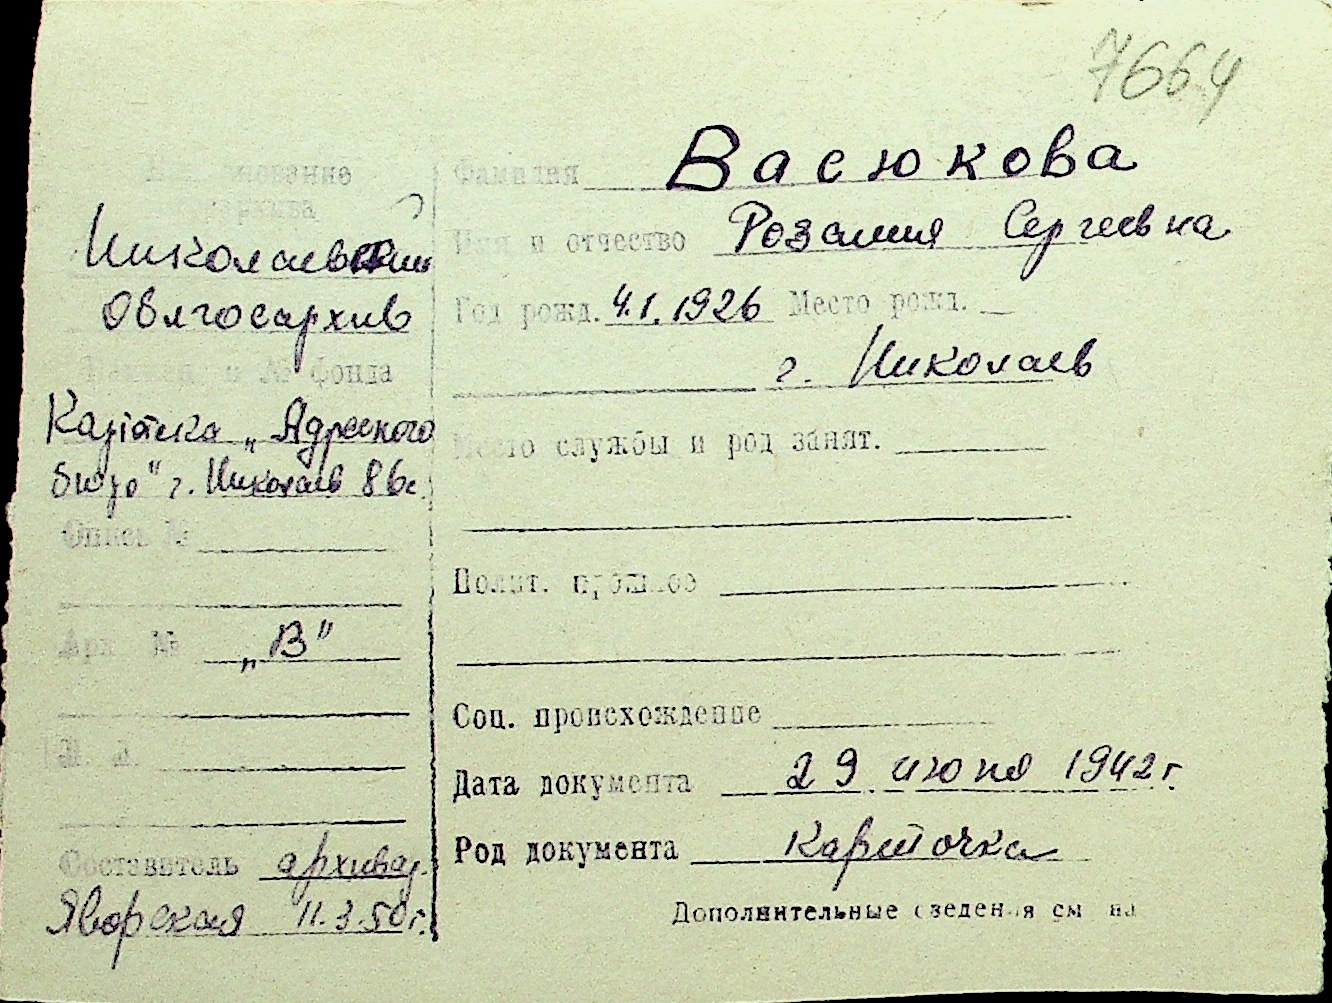 7664
Наименование
госархива
Николаевский
Облгосархив
Назван. и № фонда
Картотека „Адресного
бюро" г. Николаев 86г.
Опись №
Арх. №
„В"
Л. Л.
Составитель архивар.
Яворская 11.3.50г.
Фамилия Васюкова
Имя и отчество Розалия Сергеевна
Год рожд. 4.1.1926 Место рожд.
г. Николаев
Место службы и род занят.
Полит. прошлое
Соц. происхождение
Дата документа 29 июня 1942г
Род документа Карточка
Дополнительные сведения см на